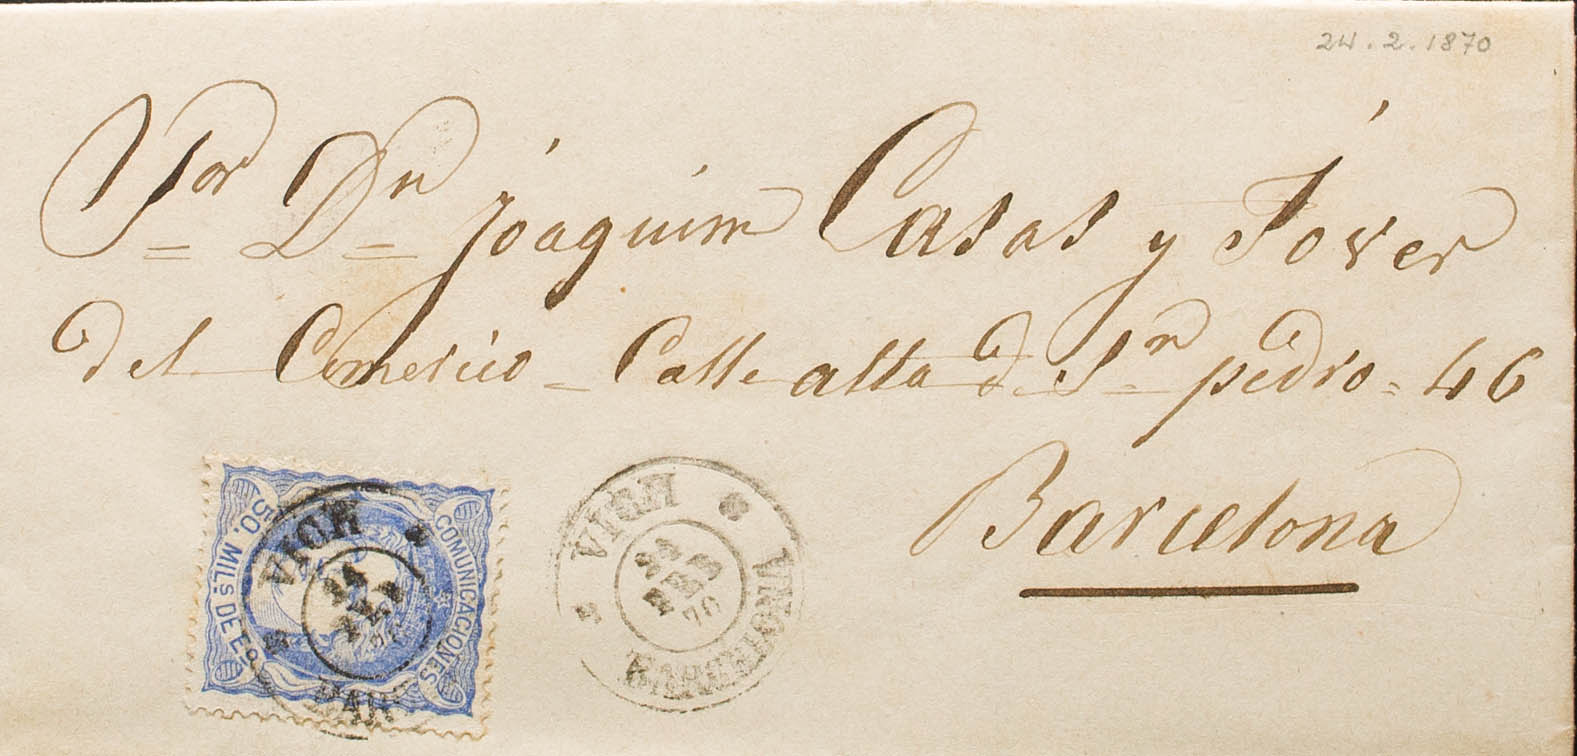 24.2.1870
Sor Dn Joaquim Casas y Jóver
del Comercio - Calle alta d Sn pedro = 46
Barcelona
COMUNICACIONES
50. MILs. DE Eo.
VICH
24
FEB
70
BARC
VICH
24
FEB
70
BARCELONA